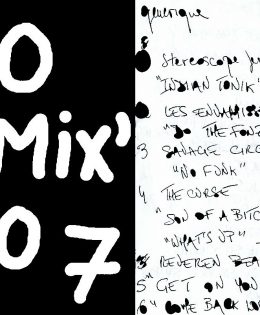 O
Mix'
07
generique
Stereoscope
"INDIAN TONIK"
LES ENVAHISS
"Do THE FONZ
3 SAVAGE CIRC
"NO FUNK"
4 THE CURSE
"SON OF A BITC
"WHAT'S UP"
5" GET ON YOU
6" COME BACK